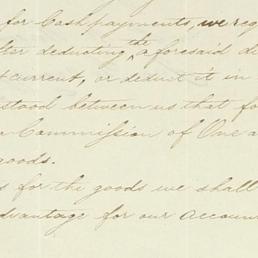 for Cash payments, we re
after deducting the aforesaid di
t current, or deduct it in
stood between us that fo
a Commission of One a
goods.
s for the goods we shall
advantage for our Accoun